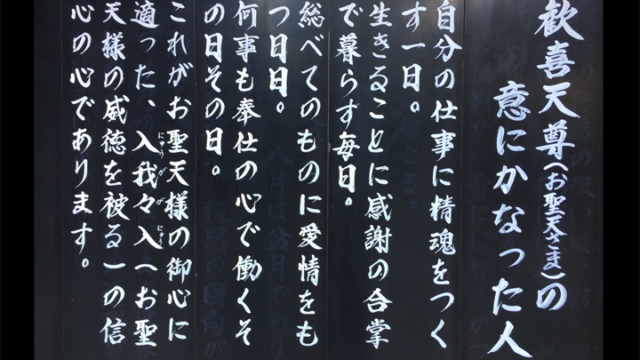 歓喜天尊(お聖天さま)の
意にかなった人
自分の仕事に精魂をつく
す一日。
生きることに感謝の合掌
で暮らす毎日。
総べてのものに愛情をも
つ日日。
何事も奉仕の心で働くそ
の日その日。
これがお聖天様の御心に
適った、入我々入(お聖
にゅうががにゅう
天様の威徳を被る)の信
心の心であります。